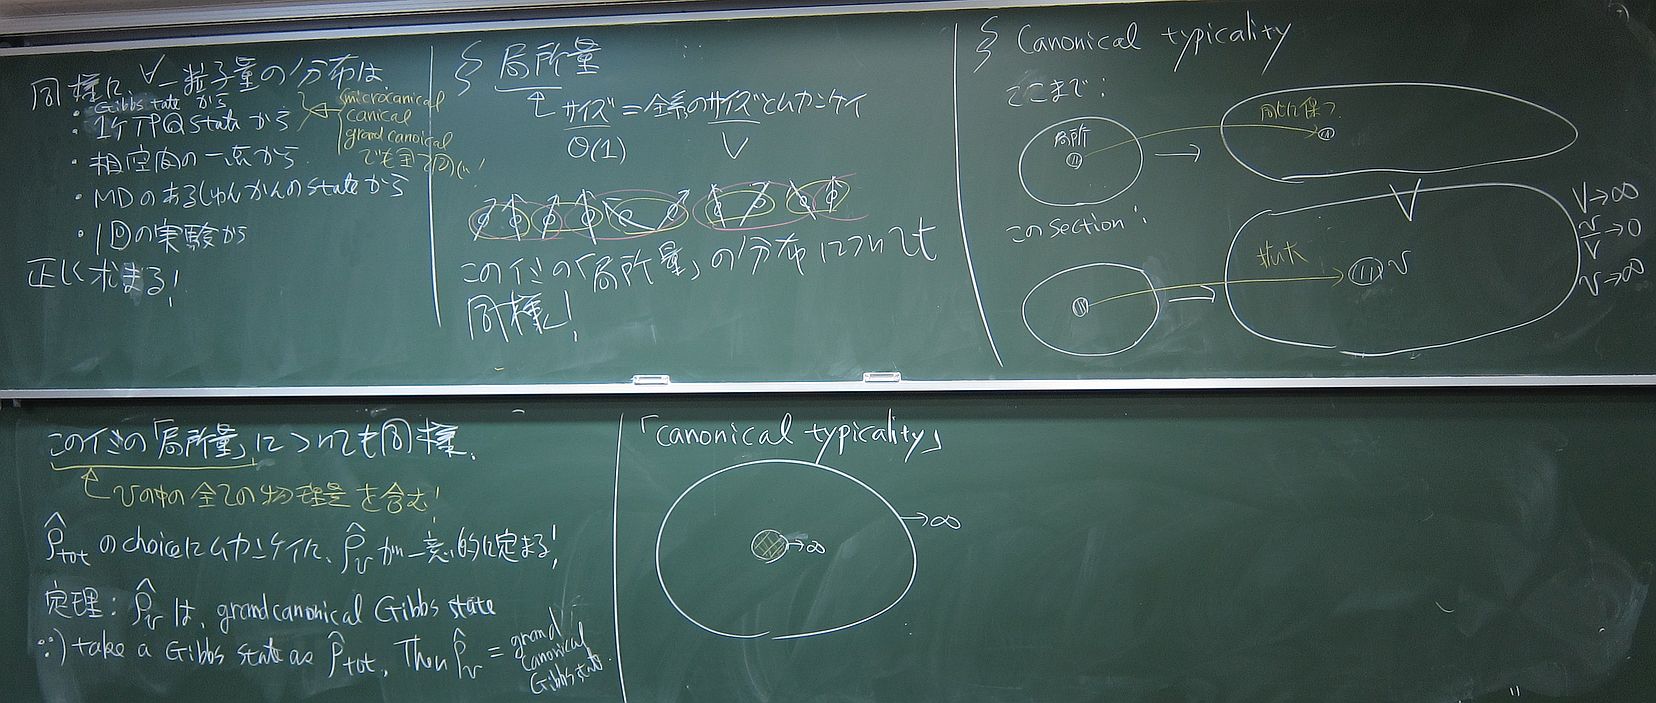 同様に、∀一粒子量の分布は
・Gibbs state から
・1ケ TPQ state から
microcanical
canical
grandcanoical
でも全て同じ!
・相空間の一点から
・MDのあるしゅんかんのstateから
・1回の実験から
正しく求まる!
§ 局所量
サイズ=全系のサイズとムカンケイ
O(1) V
このイミの「局所量」の分布についても
同様!
§ Canonical typicality
ここまで:
局所
同じに保つ
V
このSection:
拡大
v
V→∞
v/V→0
v→∞
このイミの「局所量」についても同様.
vの中の全ての物理量を含む!
ρ̂tot のchoiceにムカンケイに、ρ̂v が一意的に定まる!
定理: ρ̂v は、grandcanonical Gibbs state
∵) take a Gibbs state as ρ̂tot. Then ρ̂v = grand
canonical
Gibbs state.
「canonical typicality」
→∞
→∞